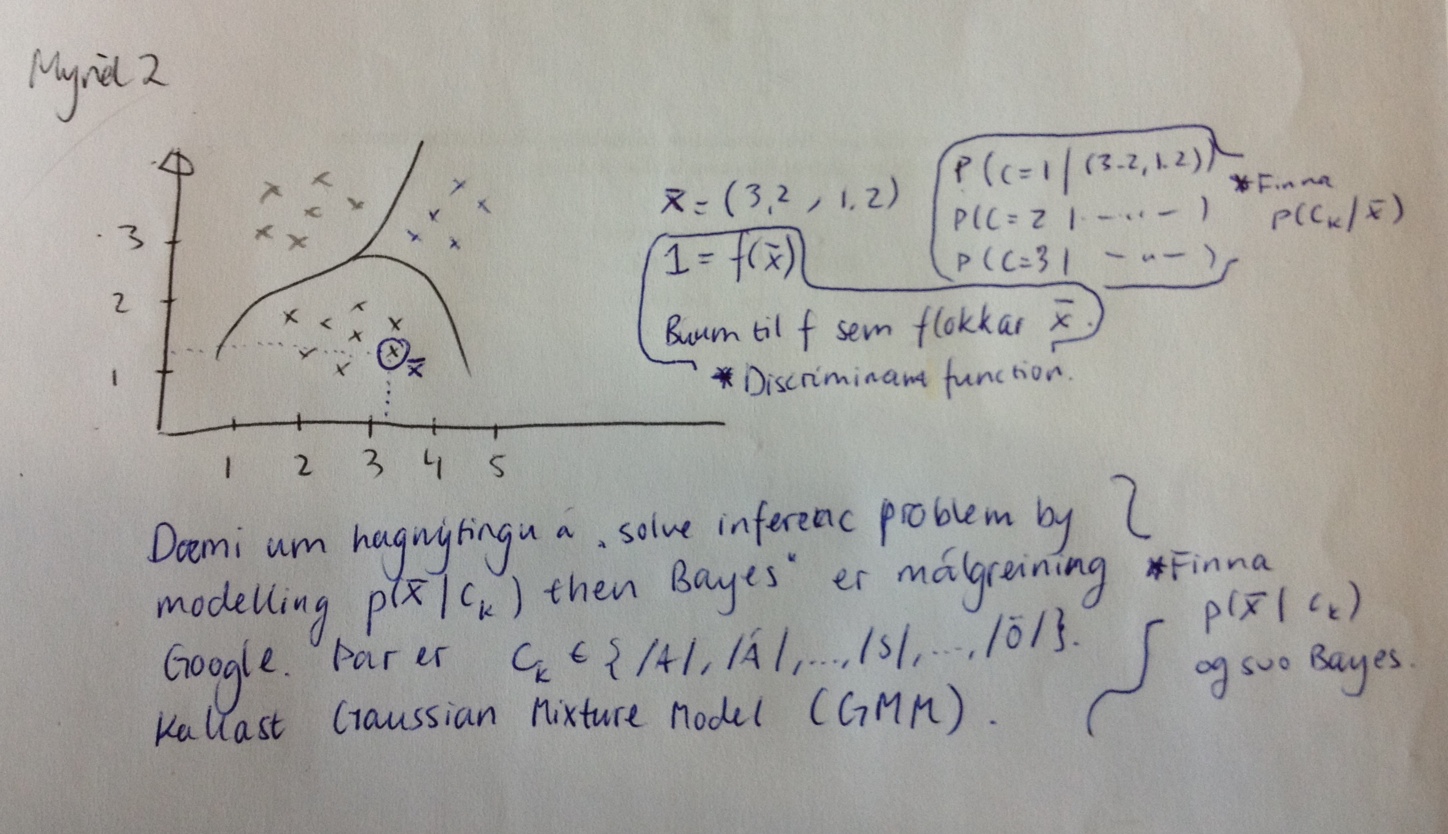 Mynd 2
3
2
1
1 2 3 4 5
x̄
x̄ = (3,2 , 1.2)
1 = f(x̄)
Buum til f sem flokkar x̄.
* Discriminant function.
P(C=1 | (3.2, 1.2))
P(C=2 | -..- )
P(C=3 | -"- )
* Finna
p(Ck/x̄)
Dæmi um hagnýtingu á „solve inferenc problem by
modelling p(x̄|Ck) then Bayes" er málgreining
Google. Þar er Ck ∈ {/A/, /Á/,...,/S/,...,/Ö/}.
Kallast Gaussian Mixture Model (GMM).
* Finna
p(x̄ | Ck)
og svo Bayes.